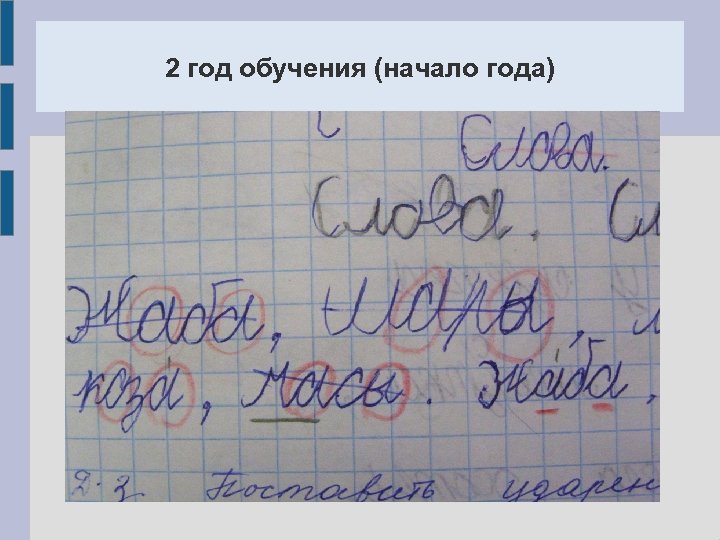 2 год обучения (начало года)
Слова.
Слова. Сл
Жаба, шары,
коза, часы. Жаба,
Д.з Поставить ударен